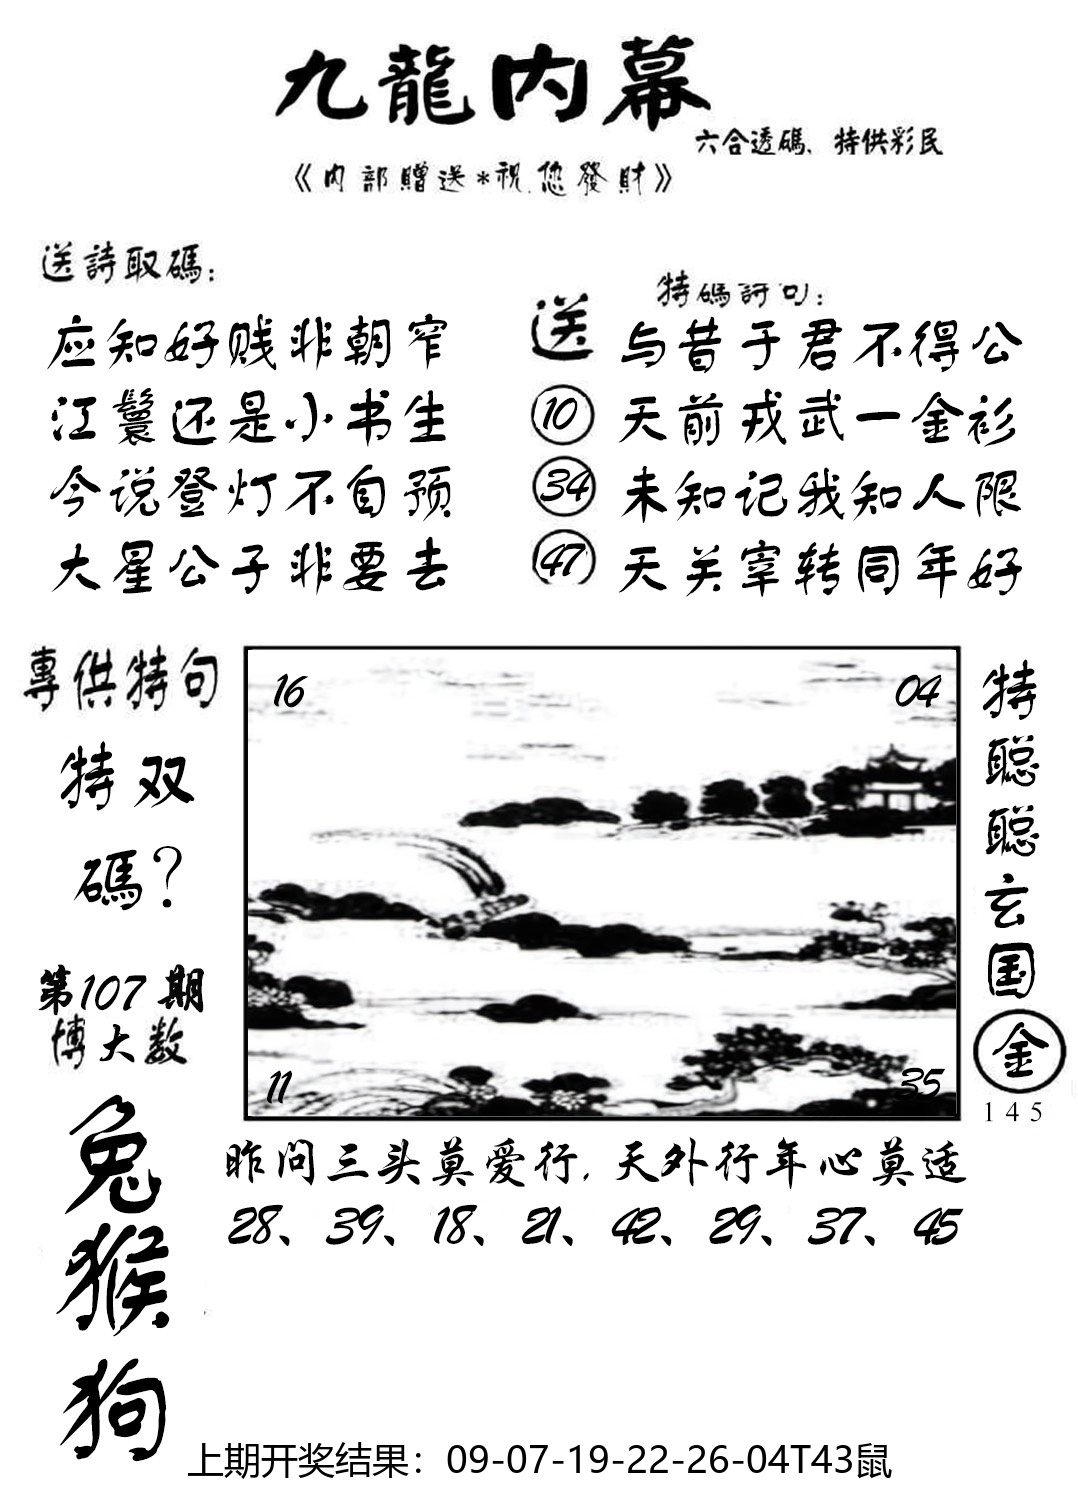 九龍内幕
六合透碼、特供彩民
《内部贈送*祝您發財》
送詩取碼:
应知好贱非朝窄
江鬟还是小书生
今说登灯不自预
大星公子非要去
送
10
34
47
特碼詩句:
与昔于君不得公
天前戎武一金衫
未知记我知人限
天关宰转同年好
專供特句
特双
碼?
第107期
博大数
兔
猴
狗
16
04
11
35
特聪聪玄国金
145
昨问三头莫爱行,天外行年心莫适
28、39、18、21、42、29、37、45
上期开奖结果:09-07-19-22-26-04T43鼠